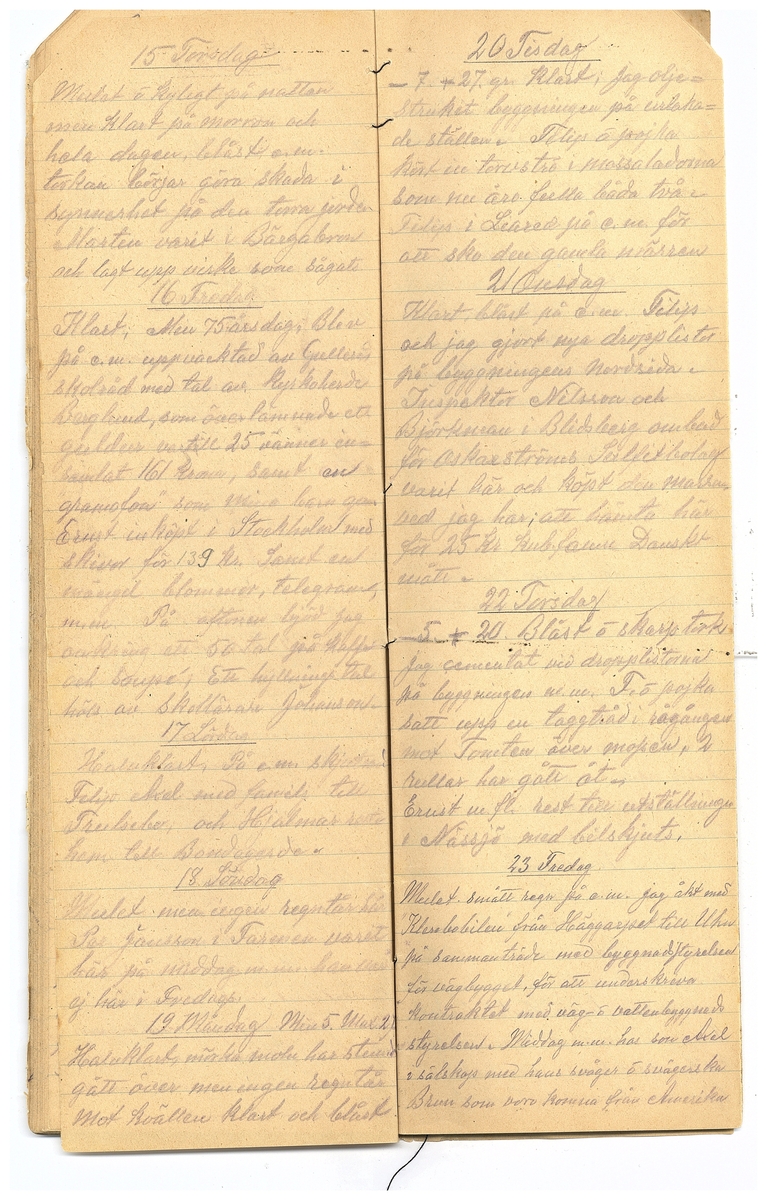 15 Torsdag
Mulet ö kyligt på natten
men klart på morron och
hela dagen, blåst e.m.
torkan börjar göra skada i
synnerhet på den torra jorden
Mårten varit i Bärgabron
och lagt upp virke som sågats
16 Fredag
Klart, Min 75 årsdag; Blev
på e.m. uppvacktad av Gullereds
skolråd med tal av Kyrkoherde
Berglind, som överlämnade ett
av till 25 vänner in-
samlat 161 Kronor, samt en
"gramofon" som mina barn gm
Ernst inköpt i Stockholm med
skivor för 139 kr. Samt en
mängd blommor, telegram,
m.m. På aftonen bjöd jag
omkring ett 50 tal på kaffe
och soupé; Ett hyllnings tal
höls av skollärare Johanson.
17 Lördag
Halvklart, På e.m. skjutsad
Filip Axel med familj till
Trälsebo, och Hjalmar reste
hem till Bondagärde.
18 Söndag
Mulet men ingen regntår här
Per Jansson i Faremen varit
här på middag m.m. han var
ej här i Fredags.
19 Måndag Min 5. Max 2
Halvklart, mörka moln har
gått över men ingen regntår
Mot kvällen klart och blåst
20 Tisdag
- 7. + 27. gr. Klart; Jag olje=
struket byggningen på urlaka=
de ställen. Filip ö pojka
kört in torvströ i massaladorna
som nu äro fulla båda två.
Filip i Liared på e.m. för
att sko den gamla märren
21 Onsdag
Klart blåst på e.m. Filip
och jag gjort nya dropplistor
på byggningens nordsida.
Inspektor Nilsson och
Björkman i Blidsberg ombud
för Oskarströms Sulfitbolag
varit här och köpt den massa
ved jag har; att hämta här
för 25 Kr kub.famn Danskt
mått.
22 Torsdag
- 5. + 20. Blåst ö skarp tork
Jag cementat vid dropplistorna
på byggningen m.m. F. ö pojka
satt upp en taggtråd i rågången
mot Tomten över mossen, 2
rullar har gått åt.
Ernst m.fl. rest till utställningen
i Nässjö med bilskjuts.
23 Fredag
Mulet smått regn på e.m. jag åkt med
Klevabobilen från Häggarpet till Uhn
på sammanträde med byggnadsstyrelsen
för vägbygget, för att underskriva
kontraktet med väg ö vattenbyggnads
styrelsen. Middag m.m. hos son Axel
i sälskap med hans svåger ö svägerska
Bron som voro komna från Amerika